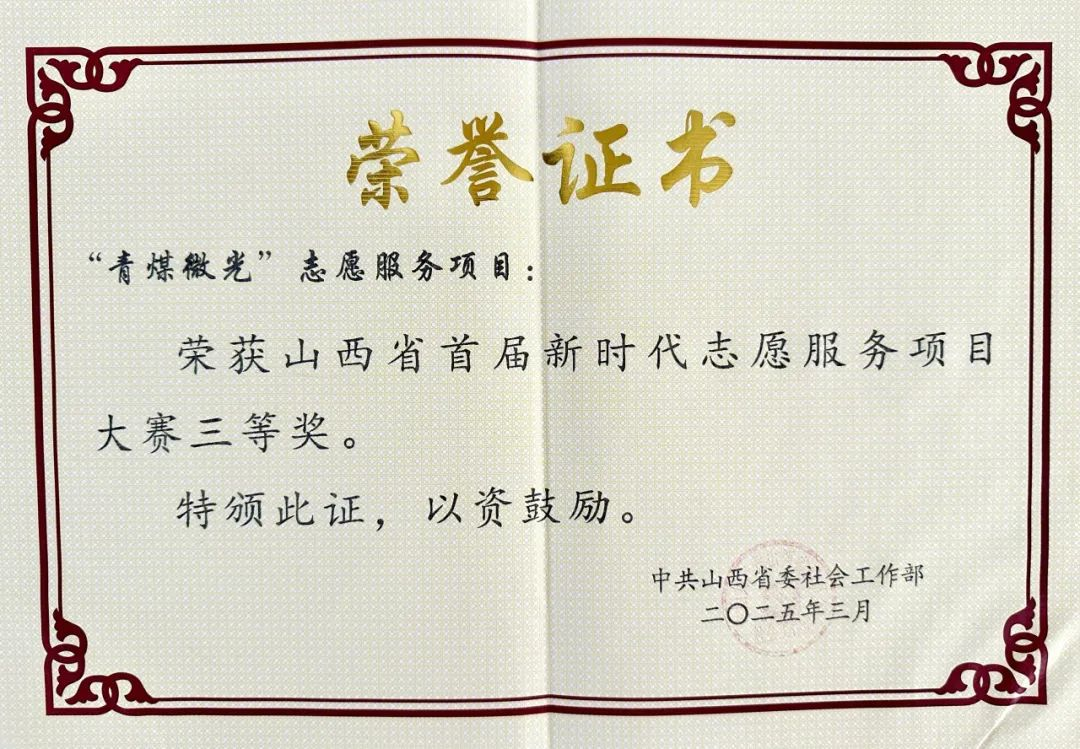 荣誉证书
“青煤微光”志愿服务项目：
荣获山西省首届新时代志愿服务项目
大赛三等奖。
特颁此证，以资鼓励。
中共山西省委社会工作部
二〇二五年三月